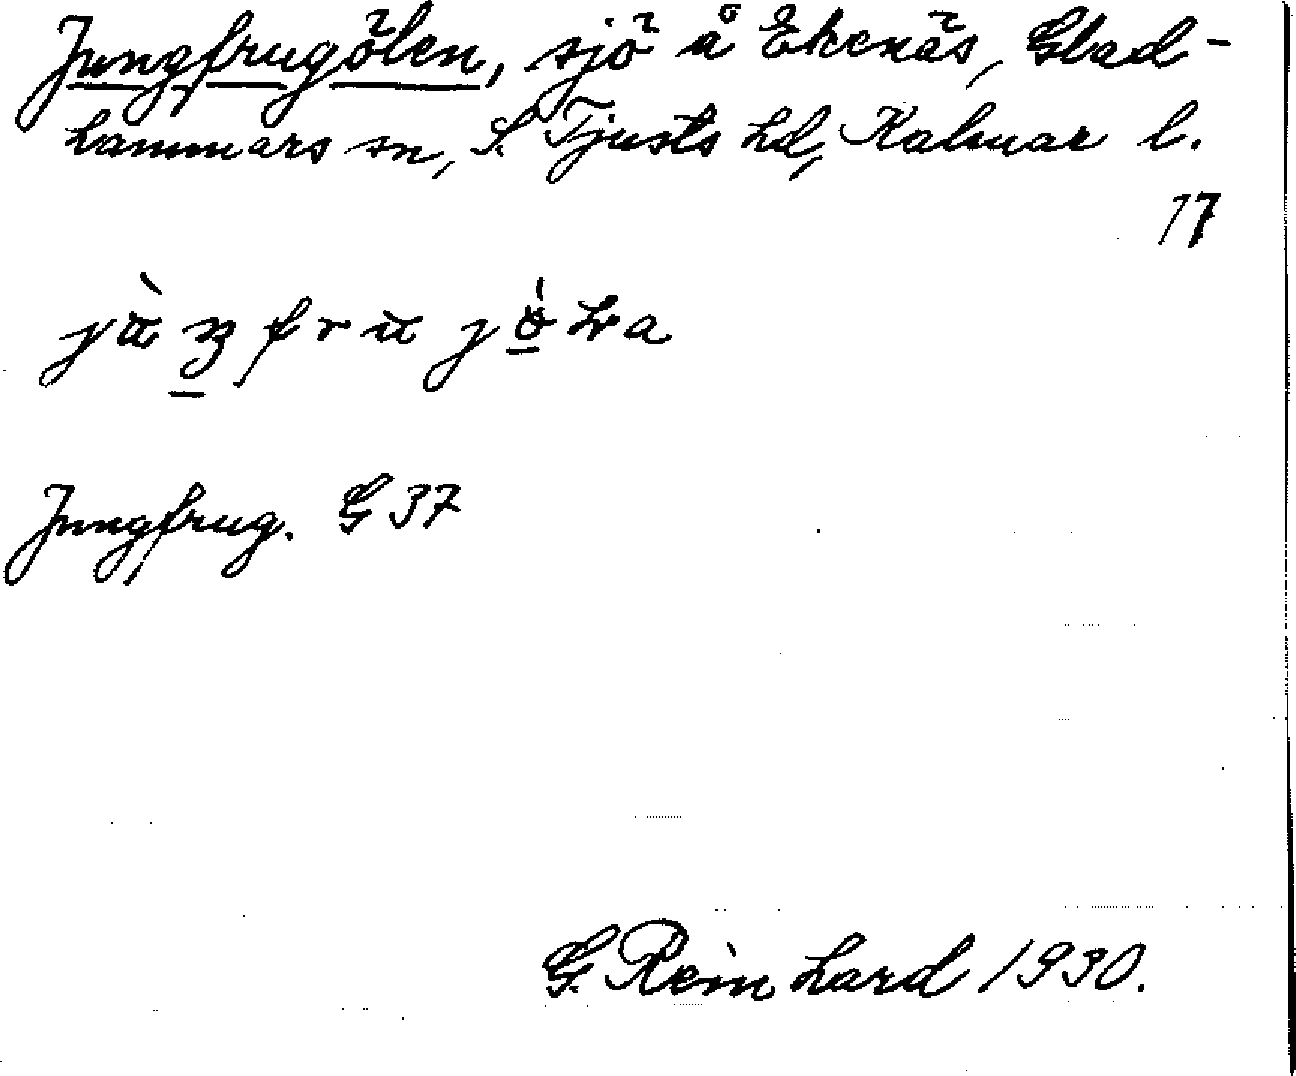 Jungfrugölen, sjö å Ekenäs, Glad-
hammars sn, S. Tjusts hd, Kalmar l.
17
Jungfrug. G 37
G. Reinhard 1930.